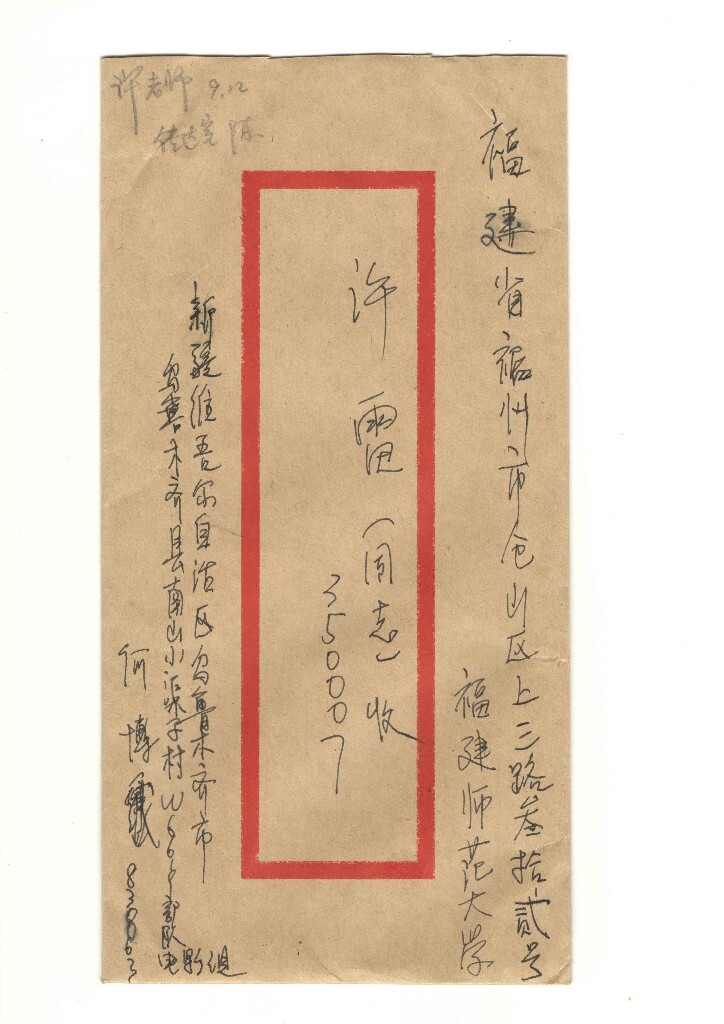 许老师 9.12
陈
福建省福州市仓山区上三路叁拾贰号
福建师范大学
许雷(同志)收
350007
新疆维吾尔自治区乌鲁木齐市
乌鲁木齐县南山小渠子村 部队电影组
何博